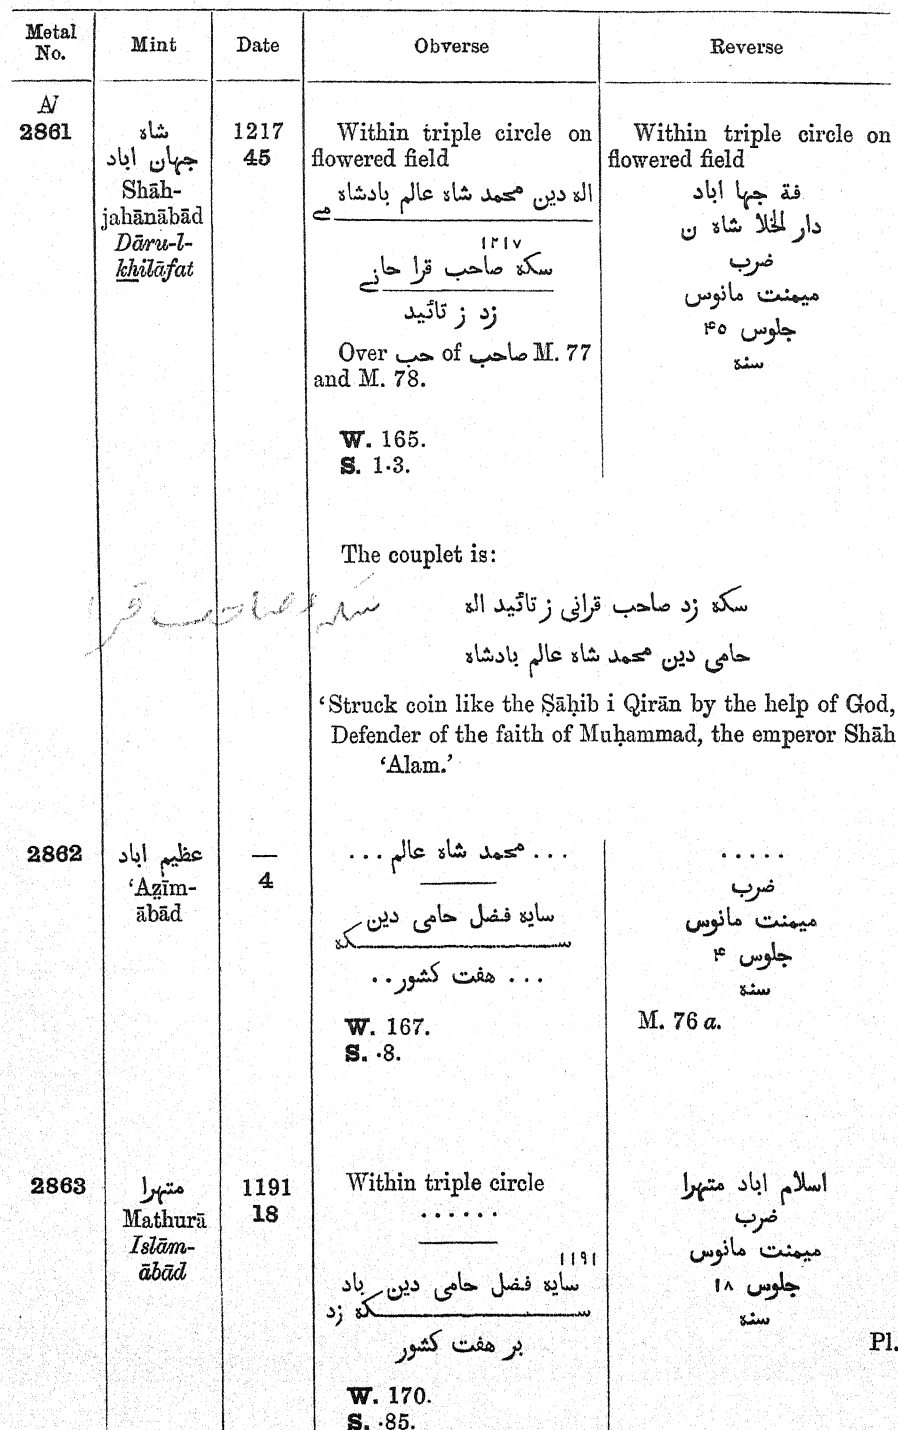 Metal No.
Mint
Date
Obverse
Reverse
A/
2861
شاه
جهان اباد
Shāh-
jahānābād
Dāru-l-
khilāfat
1217
45
Within triple circle on
flowered field
اله دین محمد شاه عالم بادشاه
مے
۱۲۱۷
سکه صاحب قرا حانے
زد ز تائید
Over حب of صاحب M. 77
and M. 78.
W. 165.
S. 1·3.
Within triple circle on
flowered field
فة جها اباد
دار الخلا شاه ن
ضرب
میمنت مانوس
جلوس ۴۵
سنة
The couplet is:
سکه زد صاحب قرانی ز تائید اله
حامی دین محمد شاه عالم بادشاه
سکه صاحب قرا
‘Struck coin like the Ṣāḥib i Qirān by the help of God,
Defender of the faith of Muḥammad, the emperor Shāh
‘Alam.’
2862
عظیم اباد
‘Aẓīm-
ābād
—
4
... محمد شاه عالم ...
سایه فضل حامی دین
سکه
... هفت کشور ..
W. 167.
S. ·8.
.....
ضرب
میمنت مانوس
جلوس ۴
سنة
M. 76 a.
2863
متهرا
Mathurā
Islām-
ābād
1191
18
Within triple circle
......
۱۱۹۱
سایه فضل حامی دین باد
سکه زد
بر هفت کشور
W. 170.
S. ·85.
اسلام اباد متهرا
ضرب
میمنت مانوس
جلوس ۱۸
سنة
Pl.